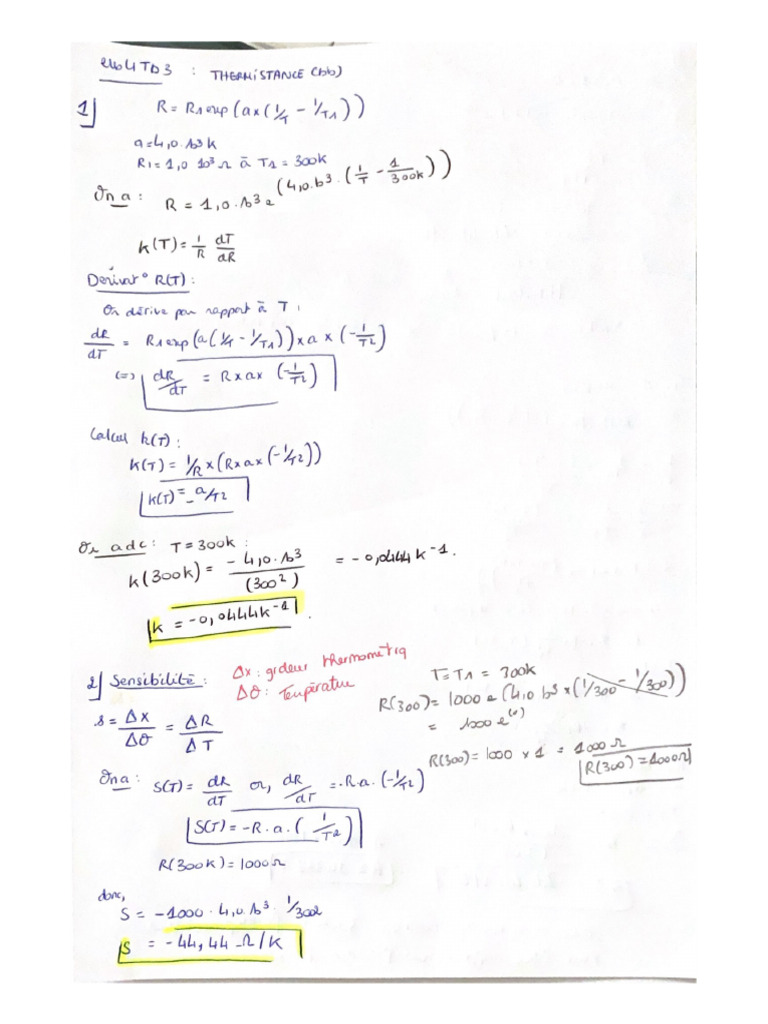 TD3 : THERMISTANCE (bb)
1] R = R1 exp (a x (1/T - 1/T1))
a = 4,0.10³ K
R1 = 1,0 10³ Ω à T1 = 300K
On a : R = 1,0.10³ e^(4,0.10³.(1/T - 1/300K))
K(T) = 1/R dT/dR
Dérivat° R(T) :
On dérive par rapport à T :
dR/dT = R1 exp (a(1/T - 1/T1)) x a x (-1/T²)
(=) dR/dT = R x a x (-1/T²)
Calcul K(T) :
K(T) = 1/R x (R x a x (-1/T²))
K(T) = -a/T²
Or adc : T = 300K :
K(300K) = -4,0.10³/(300²) = -0,0444 K⁻¹.
K = -0,0444 K⁻¹.
2] Sensibilité :
Δx : gdeur thermométriq
Δθ : Température
S = Δx/Δθ = ΔR/ΔT
T = T1 = 300K
R(300) = 1000 e (4,0 10³ x (1/300 - 1/300))
= 1000 e^(0)
R(300) = 1000 x 1 = 1000 Ω
R(300) = 1000 Ω
On a : S(T) = dR/dT or, dR/dT = -R.a.(-1/T²)
S(T) = -R.a.(1/T²)
R(300K) = 1000 Ω
donc,
S = -1000.4,0.10³.1/300²
S = -44,44 Ω/K